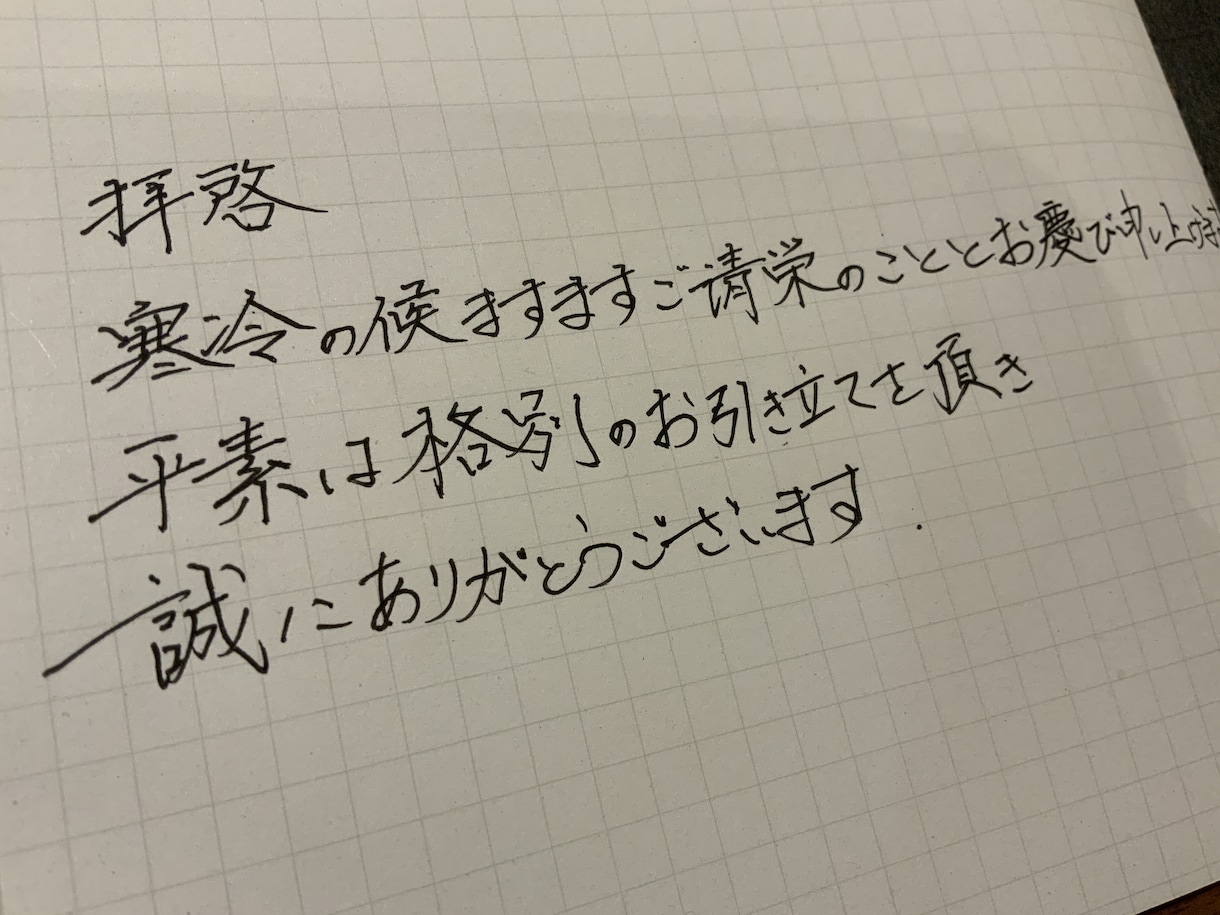 拝啓
寒冷の候ますますご請栄のこととお慶び申し上げま
平素は格別のお引き立てを頂き
誠にありがとうございます.